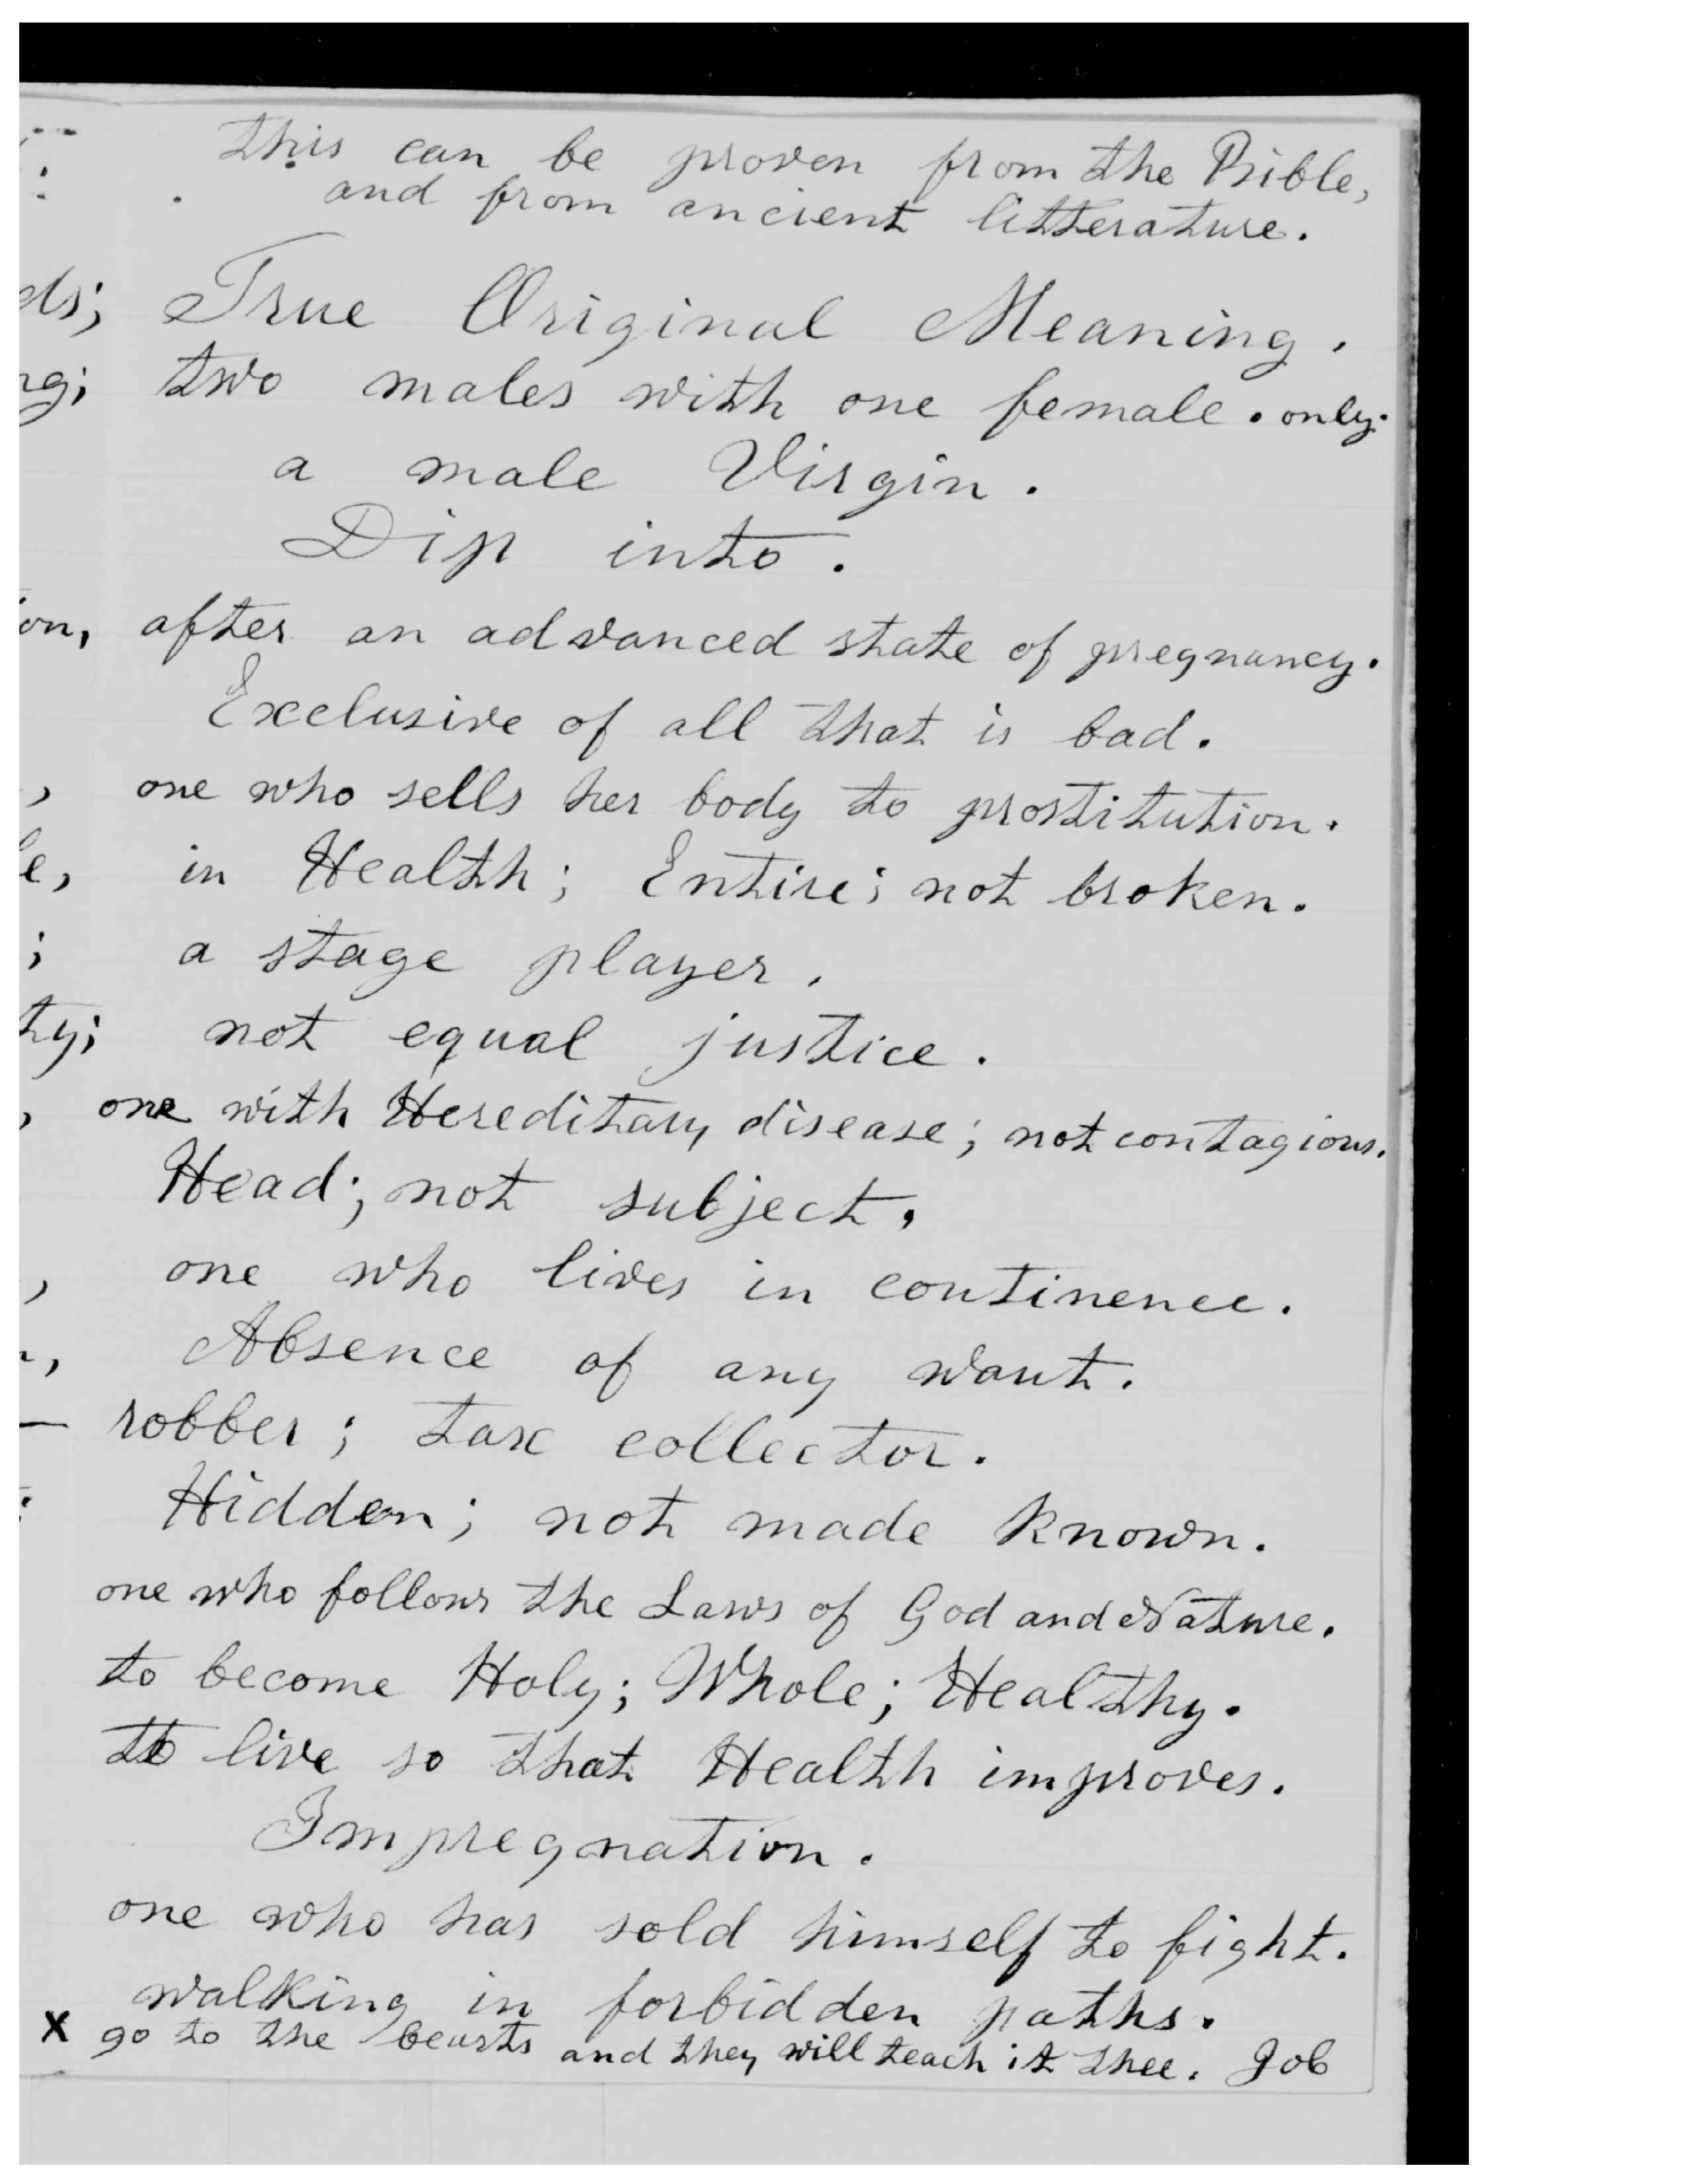 this can be proven from the Bible,
and from ancient litterature.
ds; True Original Meaning.
ng; two males with one female. only.
a male Virgin.
Dip into.
on, after an advanced state of pregnancy.
Exclusive of all that is bad.
, one who sells her body to prostitution.
e, in Health; Entire; not broken.
; a stage player.
ty; not equal justice.
, one with Hereditary disease; not contagious.
Head; not subject.
, one who lives in continence.
, Absence of any want.
— robber; tax collector.
Hidden; not made known.
one who follows the Laws of God and Nature.
to become Holy; Whole; Healthy.
to live so that Health improves.
Impregnation.
one who has sold himself to fight.
walking in forbidden paths.
x go to the beasts and they will teach it thee. Job